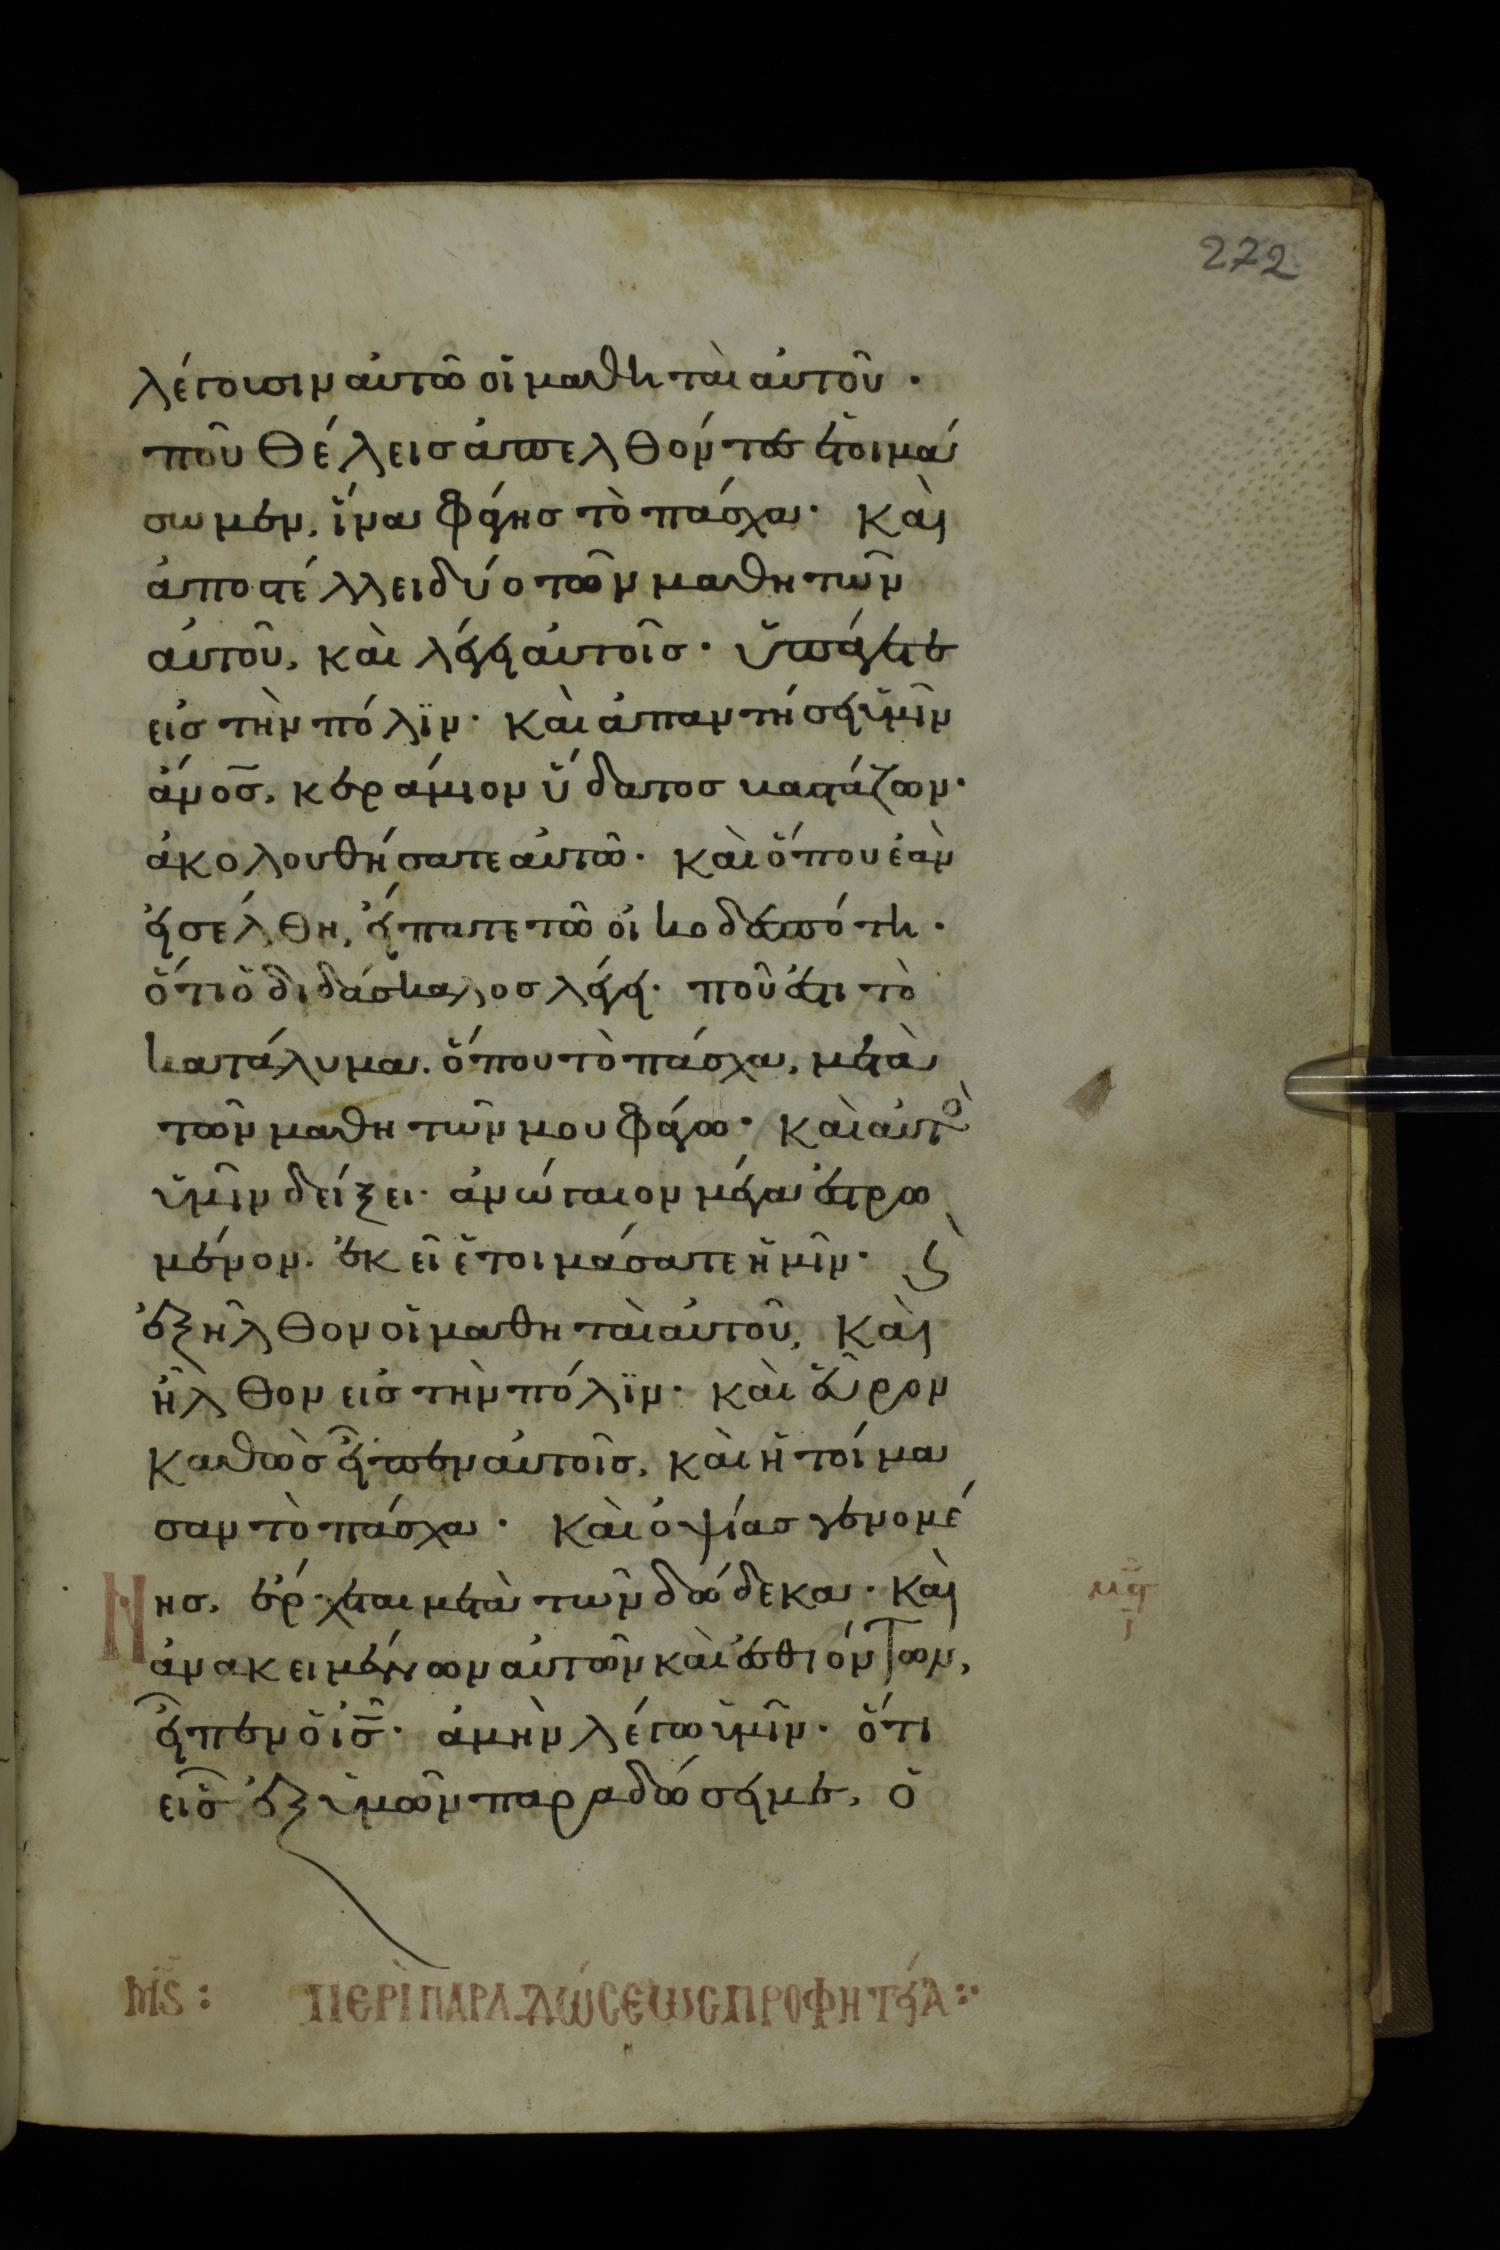 272
λέγουσιν αὐτῶ οἱ μαθηταὶ αὐτοῦ·
ποῦ θέλεισ ἀπελθόντεσ ἑτοιμά
σωμεν, ἵνα φάγησ τὸ πάσχα· Καὶ
ἀποστέλλει δύο τῶν μαθητῶν
αὐτοῦ, καὶ λέγει αὐτοῖσ· ὑπάγετε
εἰσ τὴν πόλϊν· καὶ ἀπαντήσει ὑμῖν
ἄνοσ, κεράμιον ὕδατοσ βαστάζων·
ἀκολουθήσατε αὐτῶ· καὶ ὅπου ἐὰν
εἰσέλθη, εἴπατε τῶ οἰκοδεσπότη·
ὅτι ὁ διδάσκαλοσ λέγει· ποῦ ἐστι τὸ
κατάλυμα. ὅπου τὸ πάσχα, μετὰ
τῶν μαθητῶν μου φάγω· καὶ αὐτὸ
ὑμῖν δείξει· ἀνώγαιον μέγα ἐστρω
μένον. ἐκεῖ ἑτοιμάσατε ἡμῖν· ϛ
ἐξῆλθον οἱ μαθηταὶ αὐτοῦ, Καὶ
ἦλθον εἰσ τὴν πόλϊν· καὶ εὗρον
καθὼσ εἶπεν αὐτοῖσ, καὶ ἡτοίμα
σαν τὸ πάσχα· Καὶ ὀψίασ γενομέ
νησ, ἔρχεται μετὰ τῶν δώδεκα· Καὶ
ἀνακειμένων αὐτῶν καὶ ἐσθιόντων,
εἶπεν ὁ ισ· ἀμὴν λέγω ὑμῖν· ὅτι
εἷσ ἐξ ὑμῶν παραδώσει με, ὁ
Μϛ: ΠΕΡῚ ΠΑΡΑΔΏΣΕΩΣ ΠΡΟΦΗΤΕΊΑ:·